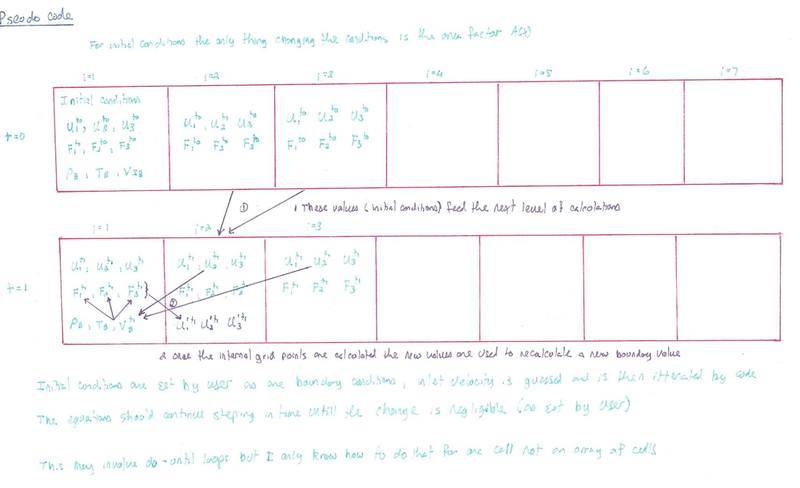 Pseodo code
For initial conditions the only thing changing the conditions is the area factor A(x)
i=1 i=2 i=3 i=4 i=5 i=6 i=7
t=0
Initial conditions
U₁^t₀, U₂^t₀, U₃^t₀ U₁^t₀, U₂^t₀ U₃^t₀ U₁^t₀ U₂^t₀ U₃^t₀
F₁^t₀, F₂^t₀, F₃^t₀ F₁^t₀ F₂^t₀ F₃^t₀ F₁^t₀ F₂^t₀ F₃^t₀
P_B, T_B, V_B
① 1 These values (initial conditions) feed the next level of calculations
i=1 i=2 i=3
t=1
U₁^t₁, U₂^t₁, U₃^t₁ U₁^t₁, U₂^t₁, U₃^t₁ U₁^t₁ U₂^t₁ U₃^t₁
F₁^t₁, F₂^t₁, F₃^t₁} ② F₁^t₁, F₂^t₁, F₃^t₁ F₁^t₁ F₂^t₁ F₃^t₁
P_B, T_B, V_B^t₁ U₁'^t₁ U₂'^t₁ U₃'^t₁
2 once the internal grid points are calculated the new values are used to recalculate a new boundary value
Initial conditions are set by user as are boundary conditions, inlet velocity is guessed and is then itterated by code
The equations should continue stepping in time untill the change is negligible (as set by user)
This may involve do-until loops but I only know how to do that for one cell not an array of cells